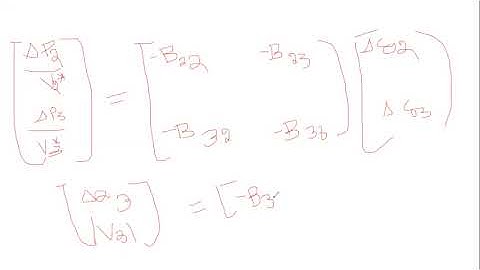 [ΔP2/V2*  ΔP3/V3*] = [-B22  -B23  -B32  -B33] [Δω2  Δω3]
[ΔQ3/|V3|] = [-B3